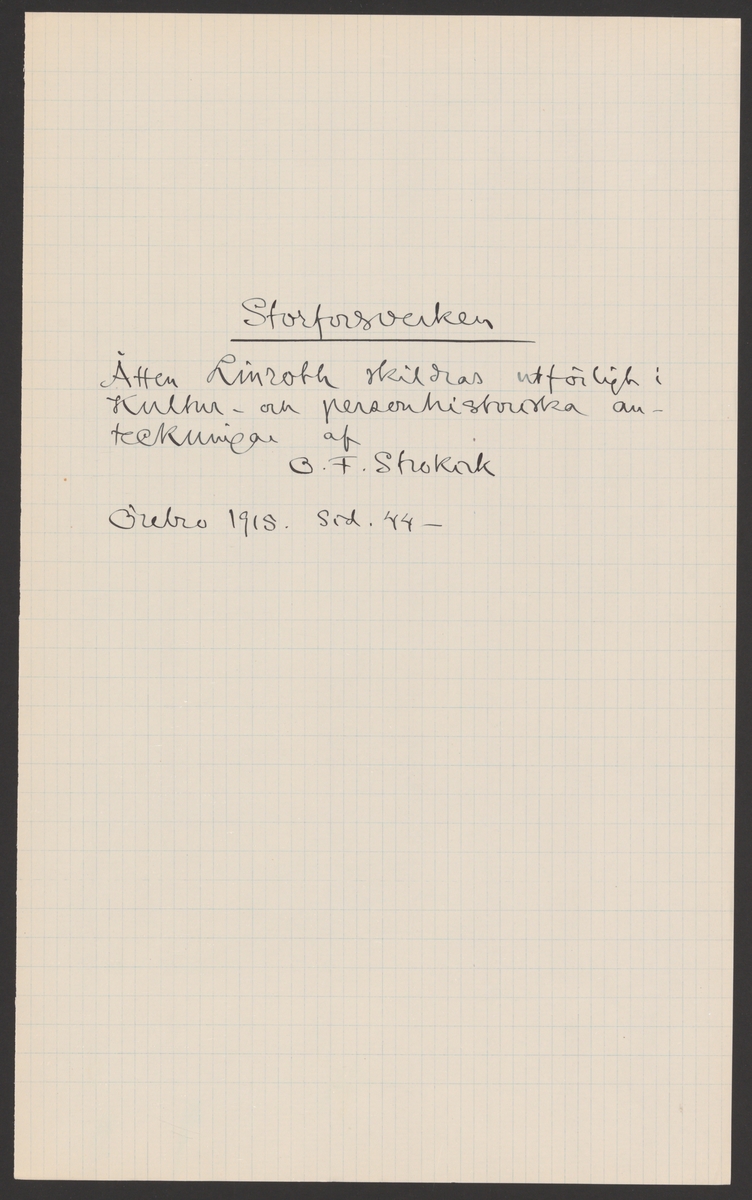 Storforsverken
Ätten Linroth skildras utförligt i
Kultur- och personhistoriska an-
teckningar af
C. F. Strokirk
Örebro 1915. Sid. 44 —